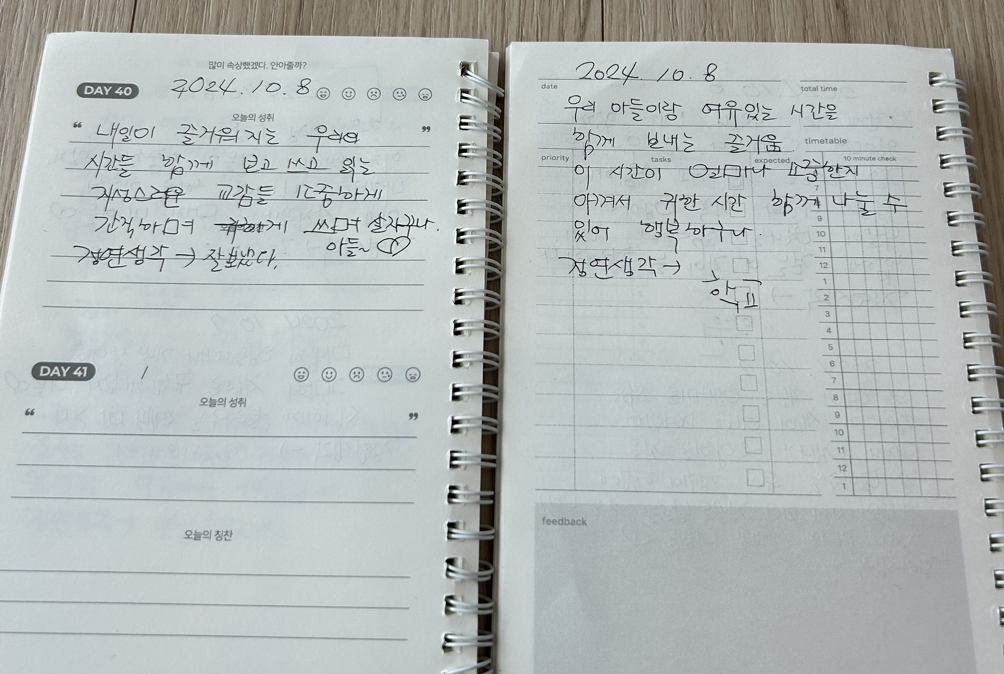 많이 속상했겠다. 안아줄까?
DAY 40
2024. 10. 8
오늘의 성취
“ 내일이 즐거워 지는 우리의 ”
시간들 함께 보고 쓰고 읽는
지성스러운 교감들 소중하게
간직하며 쓰며 살자꾸나.
아들~ ♡
정연생각 → 잘보냈다.
DAY 41
/
오늘의 성취
“ ”
오늘의 칭찬
2024. 10. 8
date
total time
우리 아들이랑 여유있는 시간을
함께 보내는 즐거움
timetable
priority tasks expected 10 minute check
이 시간이 얼마나 소중한지
7
여겨서 귀한 시간 함께 나눌 수
9
있어 행복하구나.
10
11
정연생각 →
12
1
학교
2
3
4
5
6
7
8
9
10
11
12
1
feedback